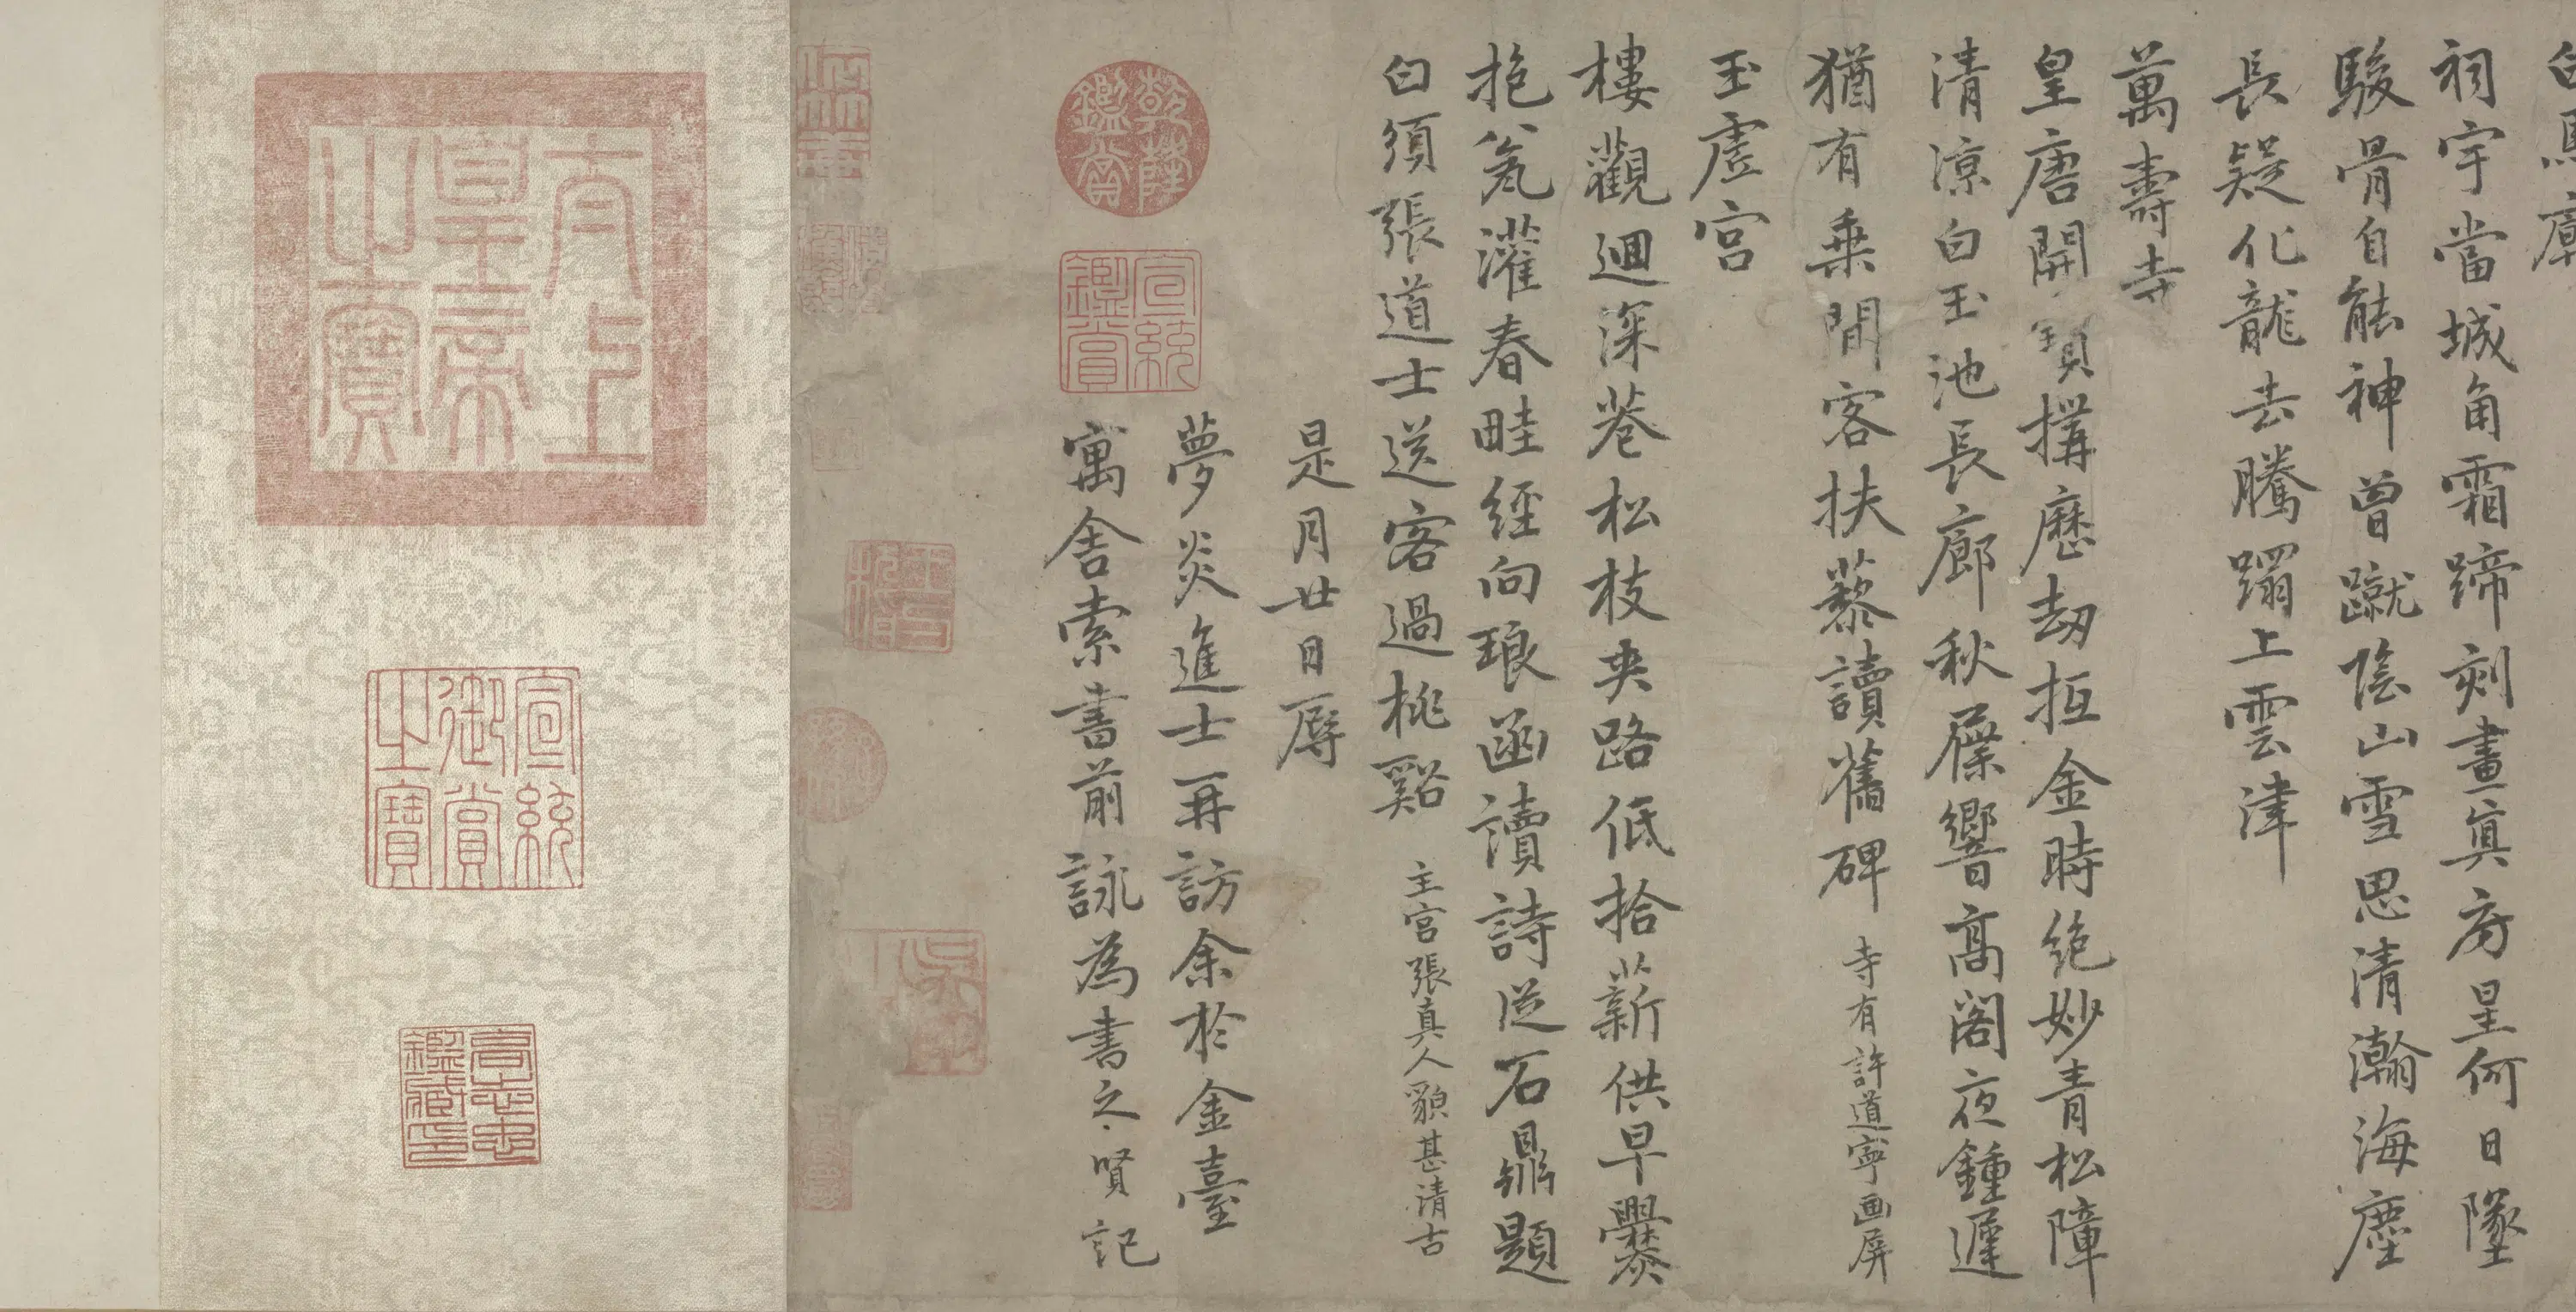 白馬廟
祠宇當城角霜蹄刻畫真房星何日墜
駿骨自能神曾蹴陰山雪思清瀚海塵
長疑化龍去騰躡上雲津
萬壽寺
皇唐開寶構歷劫抵金時絕妙青松障
清涼白玉池長廊秋屧響高閣夜鍾遲
猶有乘閒客扶藜讀舊碑
寺有許道寧画屏
玉虛宮
樓觀迴深巷松枝夾路低拾薪供早爨
抱瓮灌春畦經向琅函讀詩從石鼎題
白須張道士送客過桃谿
主宮張真人貌甚清古
是月廿日辱
夢炎進士再訪余於金臺
寓舍索書前詠為書之賢記
乾隆鑑賞
宣統鑑賞
太上皇帝之寶
宣統御賞之寶